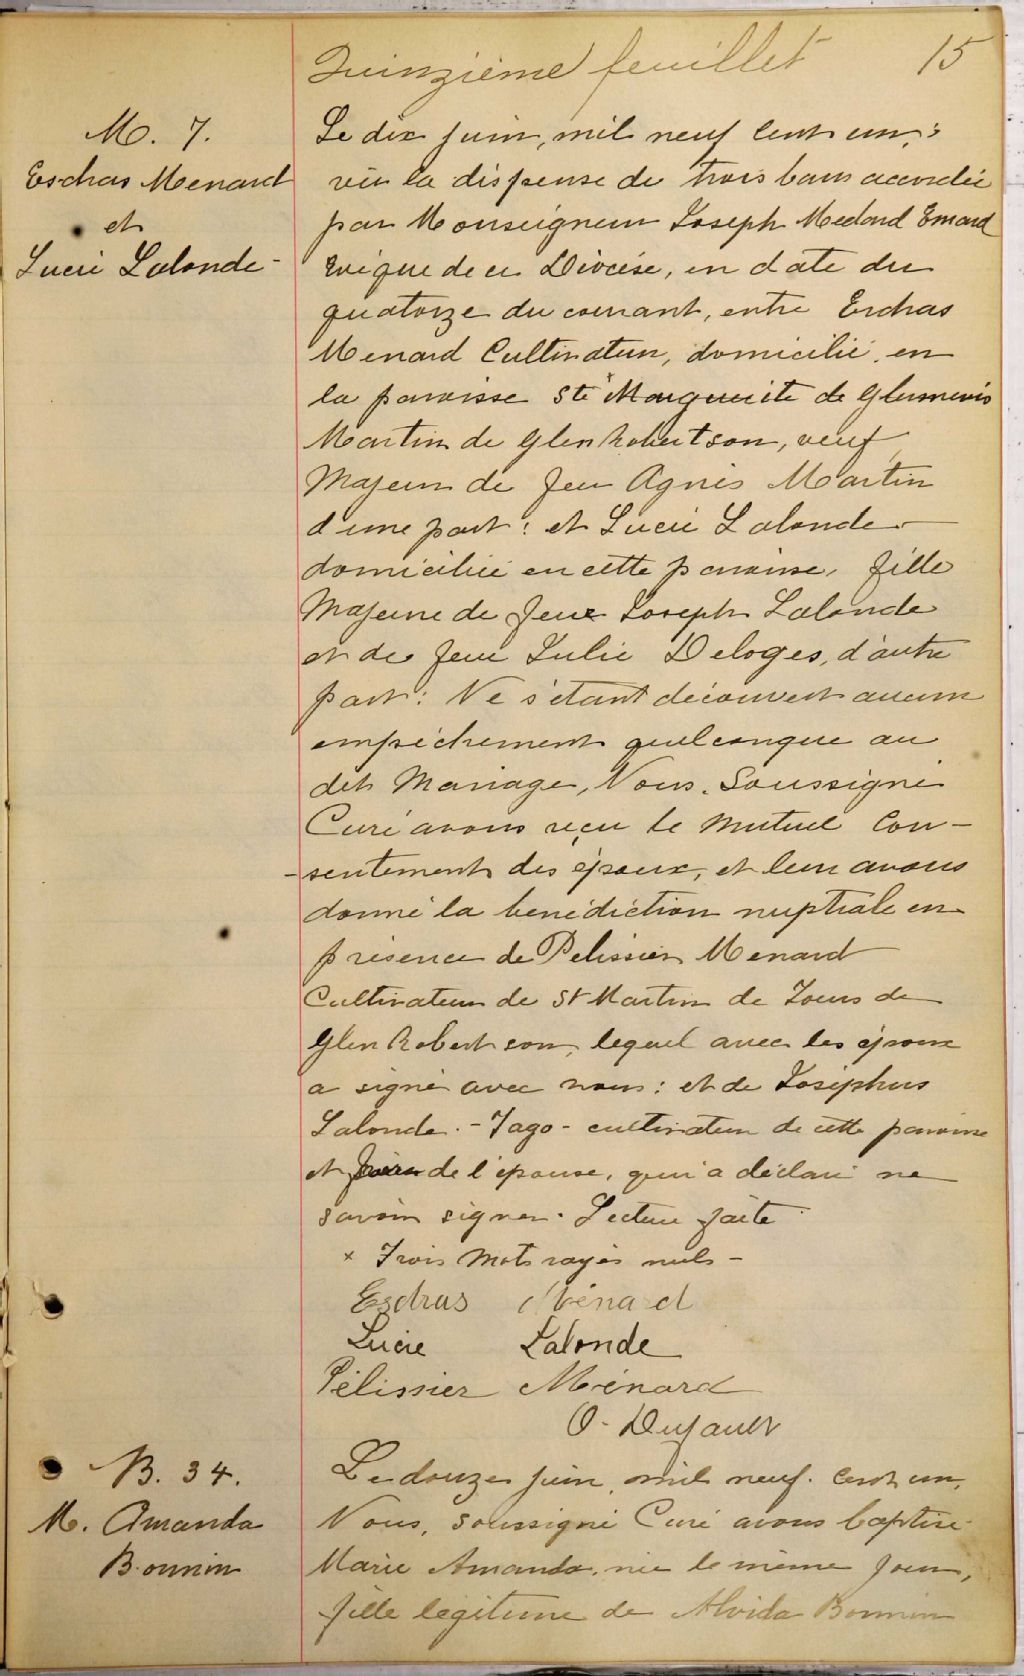 Quinzième feuillet 15
M. 7.
Esdras Menard
et
Lucie Lalonde -
Le dix juin, mil neuf cent un;
vu la dispense de trois bans accordée
par Monseigneur Joseph Medard Emard
Evêque de ce Diocèse, en date du
quatorze du courant, entre Esdras
Menard Cultivateur, domicilié en
la paroisse Ste Marguerite de Glennevis
Martin de Glen Robertson, veuf
Majeur de feu Agnès Martin
d'une part: et Lucie Lalonde
domiciliée en cette paroisse, fille
Majeure de feu Joseph Lalonde
et de feue Julie Deloges, d'autre
part: Ne s'étant découvert aucun
empêchement quelconque au
dit Mariage, Nous, Soussigné
Curé avons reçu le mutuel Con-
-sentement des époux, et leur avons
donné la bénédiction nuptiale en
présence de Pelissier Menard
Cultivateur de St Martin de Tours de
Glen Robertson, lequel avec les époux
a signé avec nous: et de Joséphus
Lalonde - Jago - cultivateur de cette paroisse
et frère de l'épouse, qui a déclaré ne
savoir signer. Lecture faite
x Trois mots rayés nuls -
Esdras Ménard
Lucie Lalonde
Pélissier Ménard
O. Dufault
B. 34.
M. Amanda
Bonnin
Le douze juin, mil neuf cent un,
Nous, soussigné Curé avons baptisé
Marie Amanda, née le même jour,
fille légitime de Alvida Bonnin